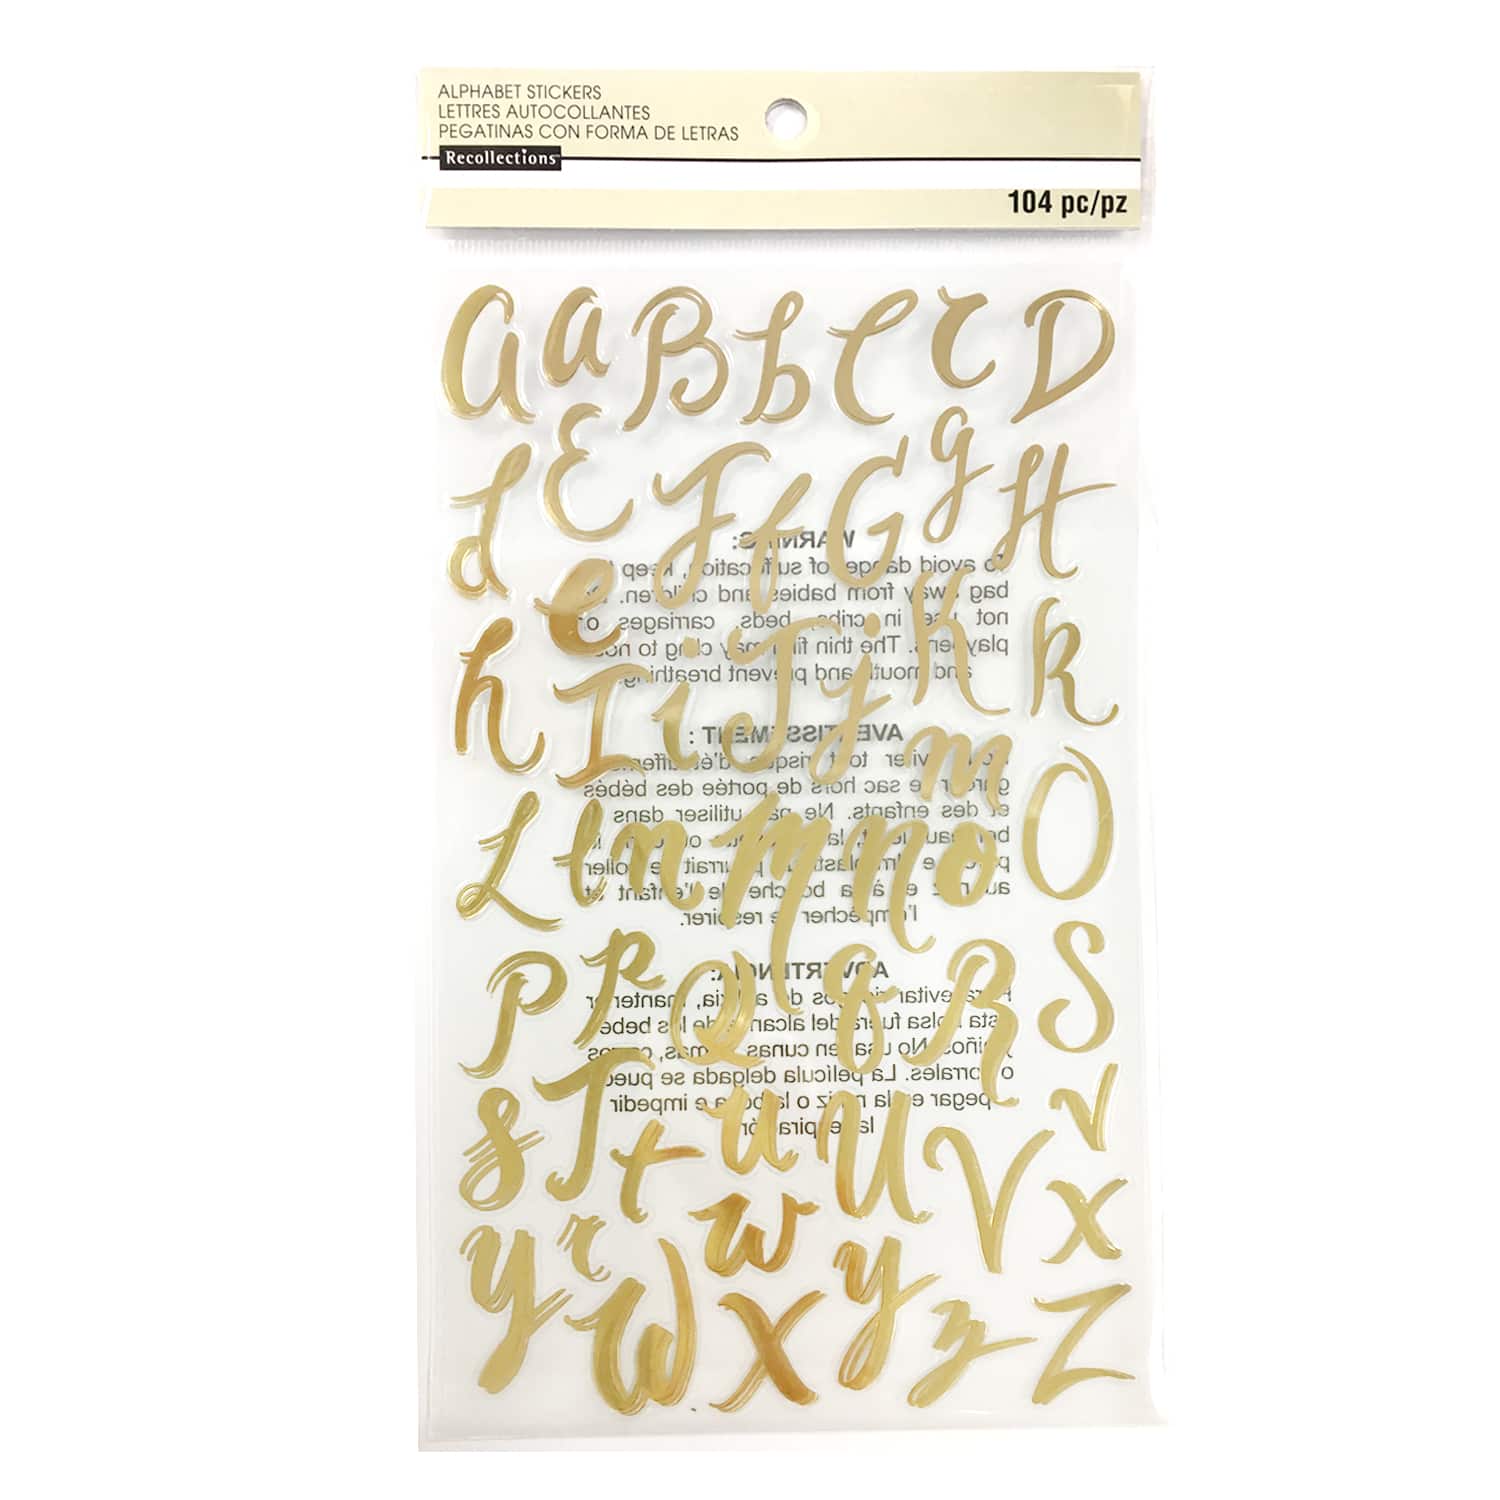 ALPHABET STICKERS
LETTRES AUTOCOLLANTES
PEGATINAS CON FORMA DE LETRAS
Recollections
104 pc/pz
a a B b C c D
d E F f G g H
h e I i J j K k
L l n m n m o O
P p Q q R S
s T t u U V v
y r W w X y z Z x
WARNING:
To avoid danger of suffocation, keep
bag away from babies and children.
not use in cribs, beds, carriages or
playpens. The thin film may cling to nose
and mouth and prevent breathing.
AVERTISSEMENT :
éviter tout risque d'étouffement
garder ce sac hors de portée des bébés
et des enfants. Ne pas utiliser dans
l'empêcher de respirer.
ADVERTENCIA:
Para evitar riesgos de asfixia, mantener
esta bolsa fuera del alcance de los bebés
y niños. No usar en cunas, camas,
o corrales. La película delgada se puede
pegar en la nariz o la boca e impedir
la respiración